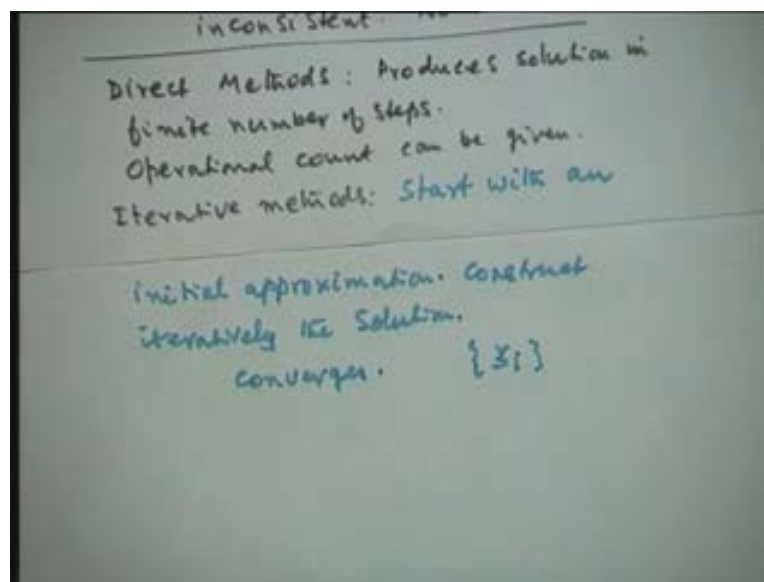 inconsistent.
Direct Methods: Produces solution in
finite number of steps.
Operational count can be given.
Iterative methods: Start with an
initial approximation. Construct
iteratively the Solution.
converges. {x_i}